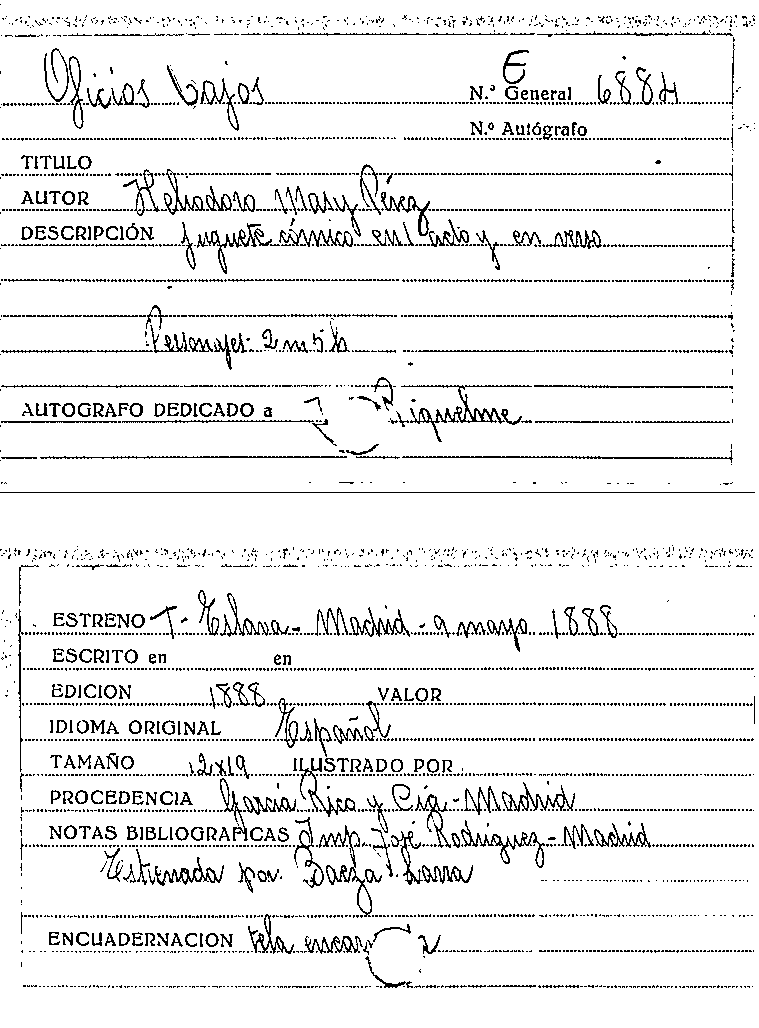 Oficios bajos
E
N.º General 6884
N.º Autógrafo
TITULO
AUTOR Heliodoro Mary Pérez
DESCRIPCIÓN Juguete cómico en 1 acto y en verso
Personajes: 2 m 5 h
AUTOGRAFO DEDICADO a Riquelme
ESTRENO T- Eslava - Madrid - 9 mayo 1888
ESCRITO en en
EDICION 1888 VALOR
IDIOMA ORIGINAL Español
TAMAÑO 12x19 ILUSTRADO POR
PROCEDENCIA García Rico y Cía - Madrid
NOTAS BIBLIOGRAFICAS Imp. José Rodríguez - Madrid
Estrenada por Baeza Larra
ENCUADERNACION tela